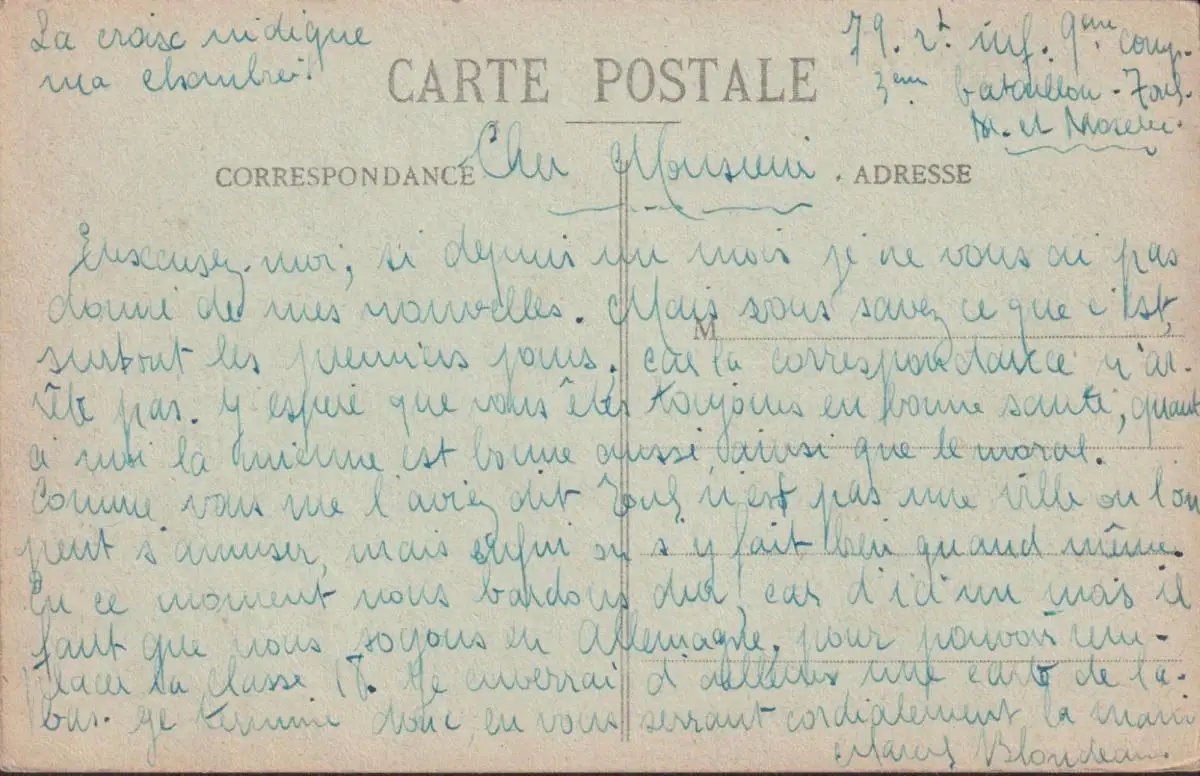 La croix indique
ma chambre!
79. rt. inf. 9eme comp.
3eme bataillon - Toul.
M. et Moselle.
CARTE POSTALE
CORRESPONDANCE
ADRESSE
Cher Monsieur
Enxcusez-moi, si depuis un mois je ne vous ai pas
donné de mes nouvelles. Mais vous savez ce que c'est,
M
surtout les premiers jours, car la correspondance n'ar-
rête pas. J'espère que vous êtes toujours en bonne santé, quant
à moi la mienne est bonne aussi, ainsi que le moral.
Comme vous me l'aviez dit Toul n'est pas une ville ou l'on
peut s'amuser, mais enfin on s'y fait bien quand même.
En ce moment nous bardons dur, car d'ici un mois il
faut que nous soyons en Allemagne, pour pouvoir rem-
placer la classe 18. Je enverrai d'ailleurs une carte de la-
bas. Je termine donc, en vous serrant cordialement la main
Marcel Blondeau